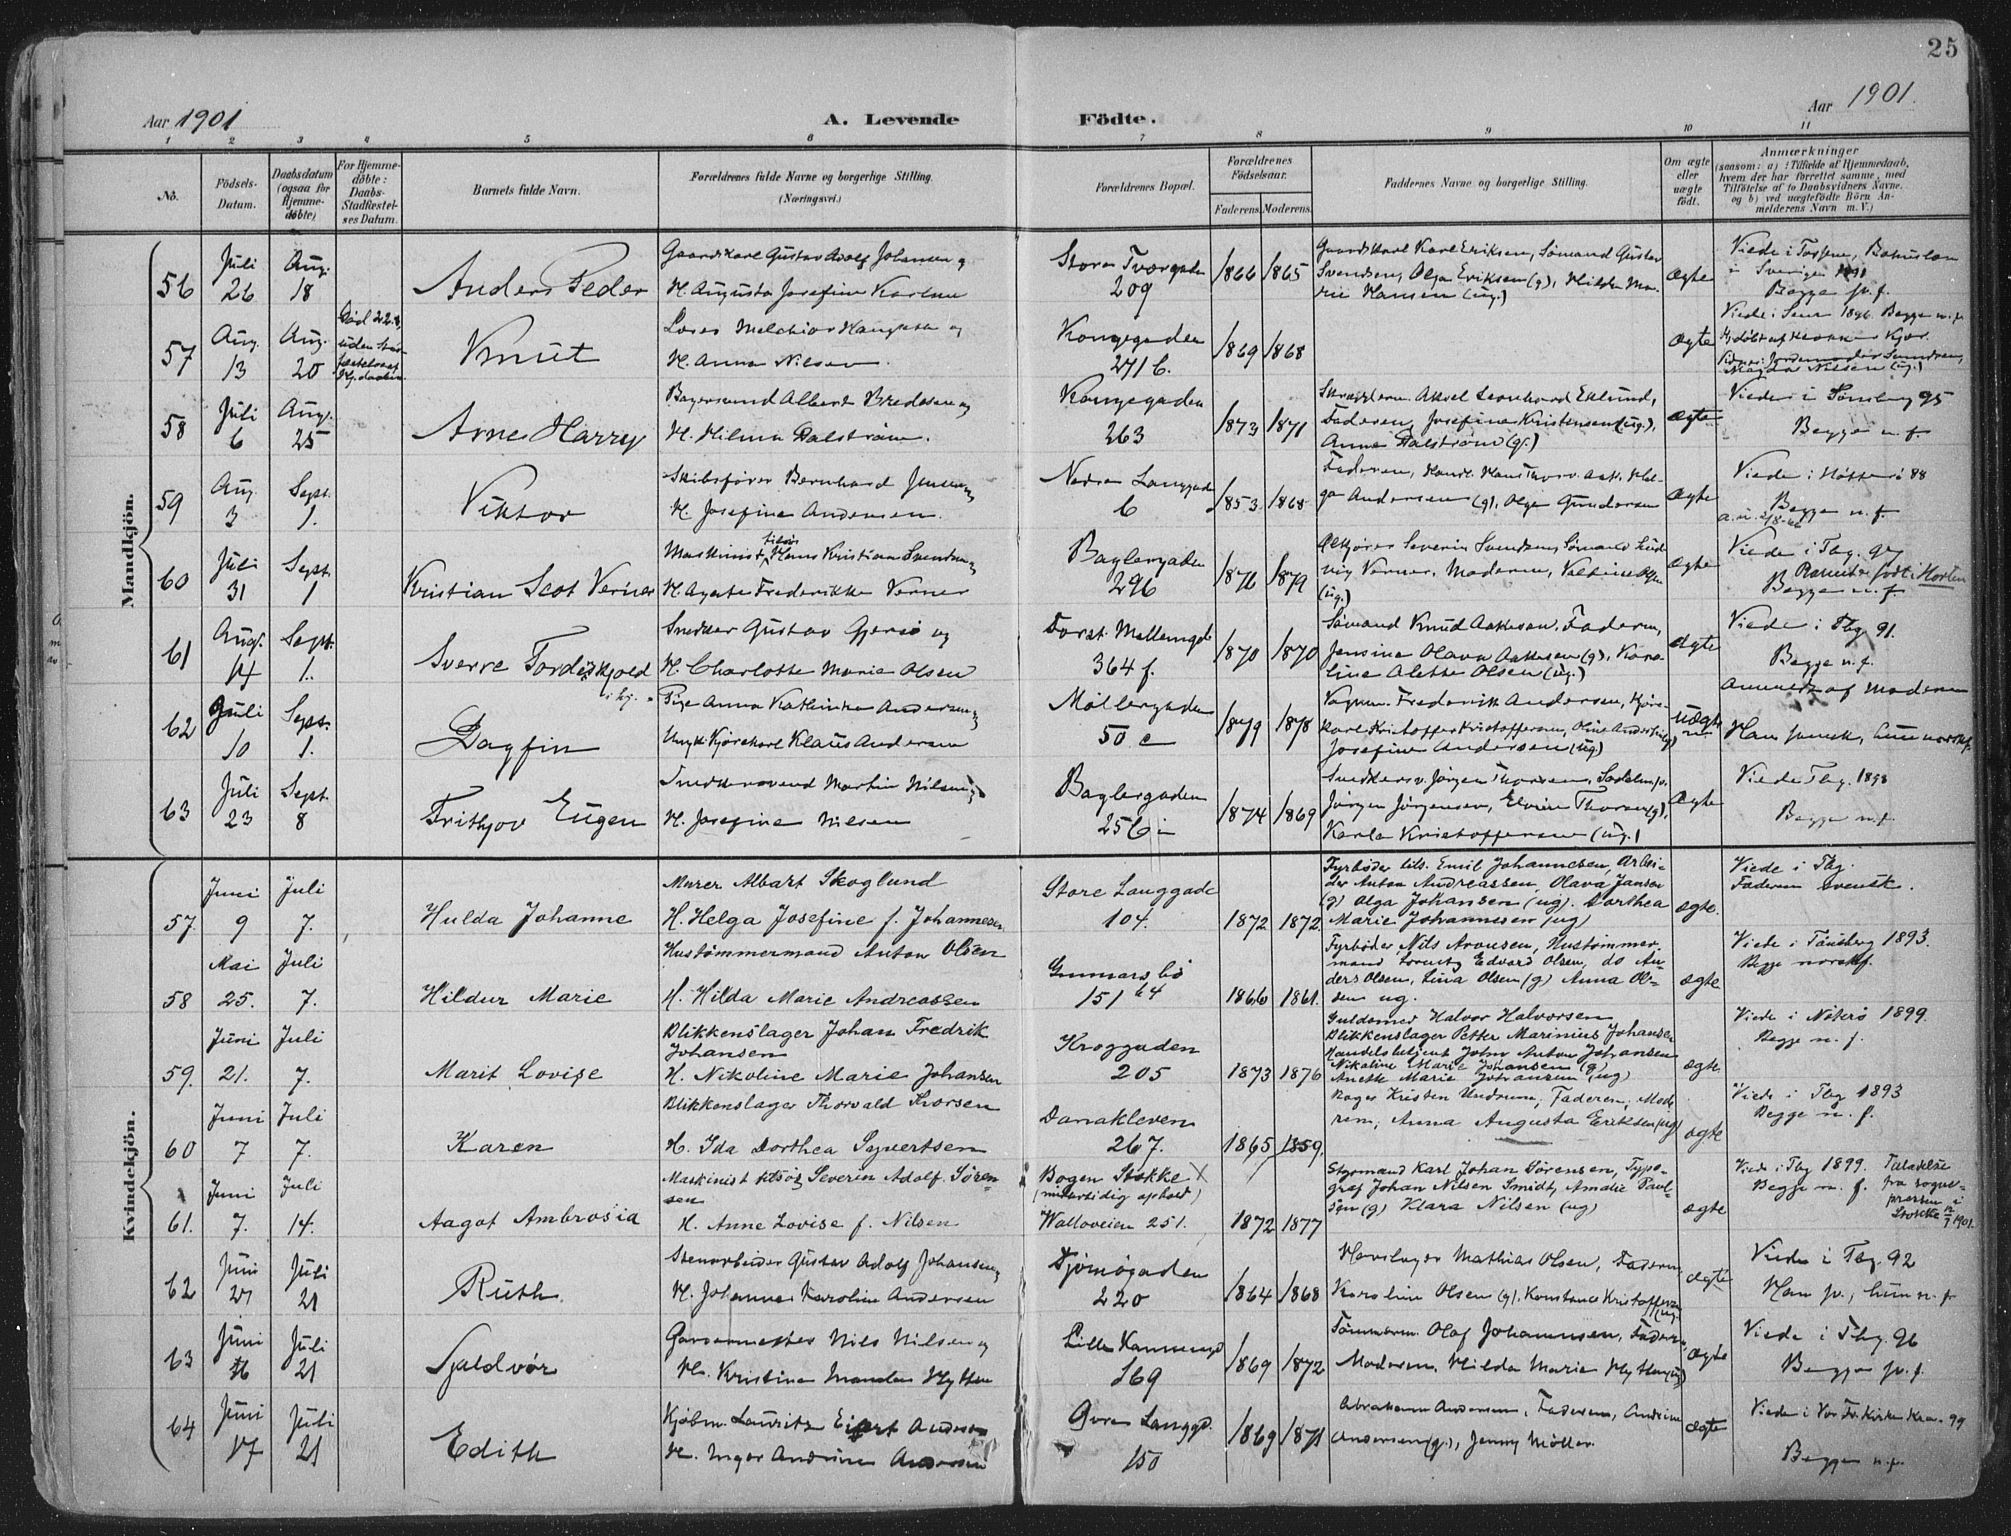 25
Aar 1901
A. Levende
Födte.
Aar 1901.
1 2 3 4 5 6 7 8 9 10 11
No.
Födsels-Datum.
Daabsdatum (ogsaa for Hjemme-døbte)
For Hjemme-døbte: Daabs-Stadfæstel-ses Datum.
Barnets fulde Navn.
Forældrenes fulde Navne og borgerlige Stilling. (Næringsvei.)
Forældrenes Bopæl.
Forældrenes Födselsaar.
Faderens. Moderens.
Faddernes Navne og borgerlige Stilling.
Om ægte eller uægte født.
Anmærkninger
(saasom: a) i Tilfælde af Hjemmedaab, hvem der har forrettet samme, med Tilföielse af to Daabsvidners Navne, og b) ved uægtefödte Börn An-melderens Navn m. V.)
Mandkjön.
56 Juli 26 Aug. 18 Anders Peder
Gaardskarl Gustav Adolf Johansen og
H. Augusta Josefine
Store Tværgaden 209 1866 1865
Gaardskarl Karl Eriksen, Sömand Gustav
Svendsen, Olga Eriksen (g), Hilda Ma-
rie Hansen (ug.)
ægte
Sverigen
Begge sv. f.
57 Aug. 13 Aug. 20 Knut
Melchior og
H. Anna Nilsen.
Kongegaden 271 b. 1869 1868
ægte
Viede i 1896. Begge n. f.
Nilsen (ug.)
58 Juli 6 Aug. 25 Arne Harry
Albert Bredesen og
H. Hilma Dalström.
Kongegaden 263 1873 1871
Aksel Leonhard Eklund,
Faderen, Josefine Kristensen (ug.),
Anna Dalström (g.)
ægte
Viede i Tönsberg 95
Begge n. f.
59 Aug. 3 Sept. 1. Viktor
Skibsförer Bernhard Jensen og
H. Josefine Andersen.
Nedre Langgade 6 1853 1868
Faderen,
Andersen (g), Olga Gundersen
ægte
Viede i Nötterö 88
Begge n. f.
60 Juli 31 Sept. 1 Kristian Scot Verner
Maskinist tilsös Hans Kristian Svendsen og
H. Agate Frederikke Verner
Baglergaden 296 1876 1879
Severin Svendsen, Sömand Lud-
vig Verner, Moderen,
(ug.)
ægte
Viede i Tbg. 97
født i Horten
Begge n. f.
61 Aug. 14 Sept. 1. Sverre Tordenskjold
Snedker Gustav Gjersö og
H. Charlotte Marie Olsen
Forst. Mellemgd. 364 f. 1870 1870
Sömand Knud Aakesen, Faderen,
Jensine Olava Aakesen (g), Karo-
line Alette Olsen (ug.)
ægte
Viede i Tbg 91.
Begge n. f.
62 Juli 10 Sept. 1. Dagfin
Pige Anna Kathinka Andersen og
Ungk. Kjörekarl Klaus Andersen
Møllergaden 50 c 1879 1878
Vognm. Frederik Andersen, Kjöre-
karl Kristoffer Kristoffersen, Oline Andersen (g)
Josefine Andersen (ug.)
uægte
Anmeldt af Moderen
Han svensk, hun norsk f.
63 Juli 23 Sept. 8 Frithjov Eugen
Snedkersvend Martin Nilsen og
H. Josefine Nilsen
Baglergaden 256 i 1874 1869
Snedkersv. Jörgen Thorsen,
Jörgen Jörgensen, Thorsen (g),
Karla Kristoffersen (ug.)
ægte
Viede Tbg. 1898
Begge n. f.
Kvindekjön.
57. Juni 9 Juli 7. Hulda Johanne
Murer Albart Skoglund
H. Helga Josefine f. Johannesen.
Store Langgade 104. 1872 1872.
Fyrböder tils. Emil Johannesen, Arbei-
der Anton Andreassen, Olava Jansen
(g) Olga Johansen (ug). Dorthea
Marie Johannesen (ug)
ægte.
Viede i Tbg.
Faderen svensk.
58 Mai 25. Juli 7. Hildur Marie
Hustömmermand Anton Olsen
H. Hilda Marie Andreassen
Gunnarsbö 151 64 1866 1861.
Fyrböder Nils Aronsen, Hustömmer-
mand Lorentz Edvard Olsen, do An-
ders Olsen, Lina Olsen (g) Anna Ol-
sen ug.
ægte
Viede i Tönsberg 1893.
Begge norskf.
59. Juni 21. Juli 7. Marit Lovise
Blikkenslager Johan Fredrik
Johansen
H. Nikoline Marie Johansen
Kroggaden 205 1873 1876
Guldsmed Halvor Halvorsen
Blikkenslager Petter Marinius Johansen
Handelsbetjent John Anton Johansen
Nikoline Marie Johansen (g)
Anette Marie Johansen (ug)
ægte.
Viede i Nöterö 1899.
Begge n. f.
60 Juni 7 Juli 7. Karen
Blikkenslager Thorvald Thorsen
H. Ida Dorthea Syvertsen
Danakleven 267. 1865 1859.
Bager Kristen Undrum, Faderen, Mode-
ren, Anna Augusta Eriksen (ug)
ægte
Viede i Tbg 1893
Begge n. f.
61. Juni 7. Juli 14. Aagot Ambrosia
Maskinist tilsös Severin Adolf Sören-
sen
H. Anne Lovise f. Nilsen
Bogen Stokke X
(midlertidig ophold)
Walloveien 251. 1872 1877
Styrmand Karl Johan Sørensen, Typo-
graf Johan Nilsen Smidt, Amalie Paul-
sen (g) Klara Nilsen (ug)
ægte
Viede i Tbg 1899.
Begge n. f.
Tilladelse
fra sogne-
presten i
Stokke 12/7 1901.
62 Juni 27 Juli 21 Ruth.
Stenarbeider Gustav Adolf Johansen og
H. Johanne Karoline Andersen
Tjömögaden 220 1864 1868
Mathias Olsen, Faderen
Karoline Olsen (g). Konstance Kristoffersen
(ug.)
ægte
Viede i Tbg 92
Han sv., hun n. f.
63 Juni 16 Juli 21 Sjaldvör
Garvermester Nils Nilsen og
H. Kristine Hytten
Lille 169 1869 1872
Tömmerm. Olaf Johannesen, Faderen,
Moderen, Hilda Marie Hytten (ug)
ægte
Viede i Tbg. 96
Begge sv. f.
64 Juni 17 Juli 21 Edith
Kjöbm. Lauritz Andersen
H. Inger Andrine Andersen
Övre Langgd. 150 1869 1871
Abraham Andersen, Faderen, Andrine
Andersen (g.), Jenny Möller.
ægte
Viede i Vor Fr. Kirke Kra. 99
Begge n. f.